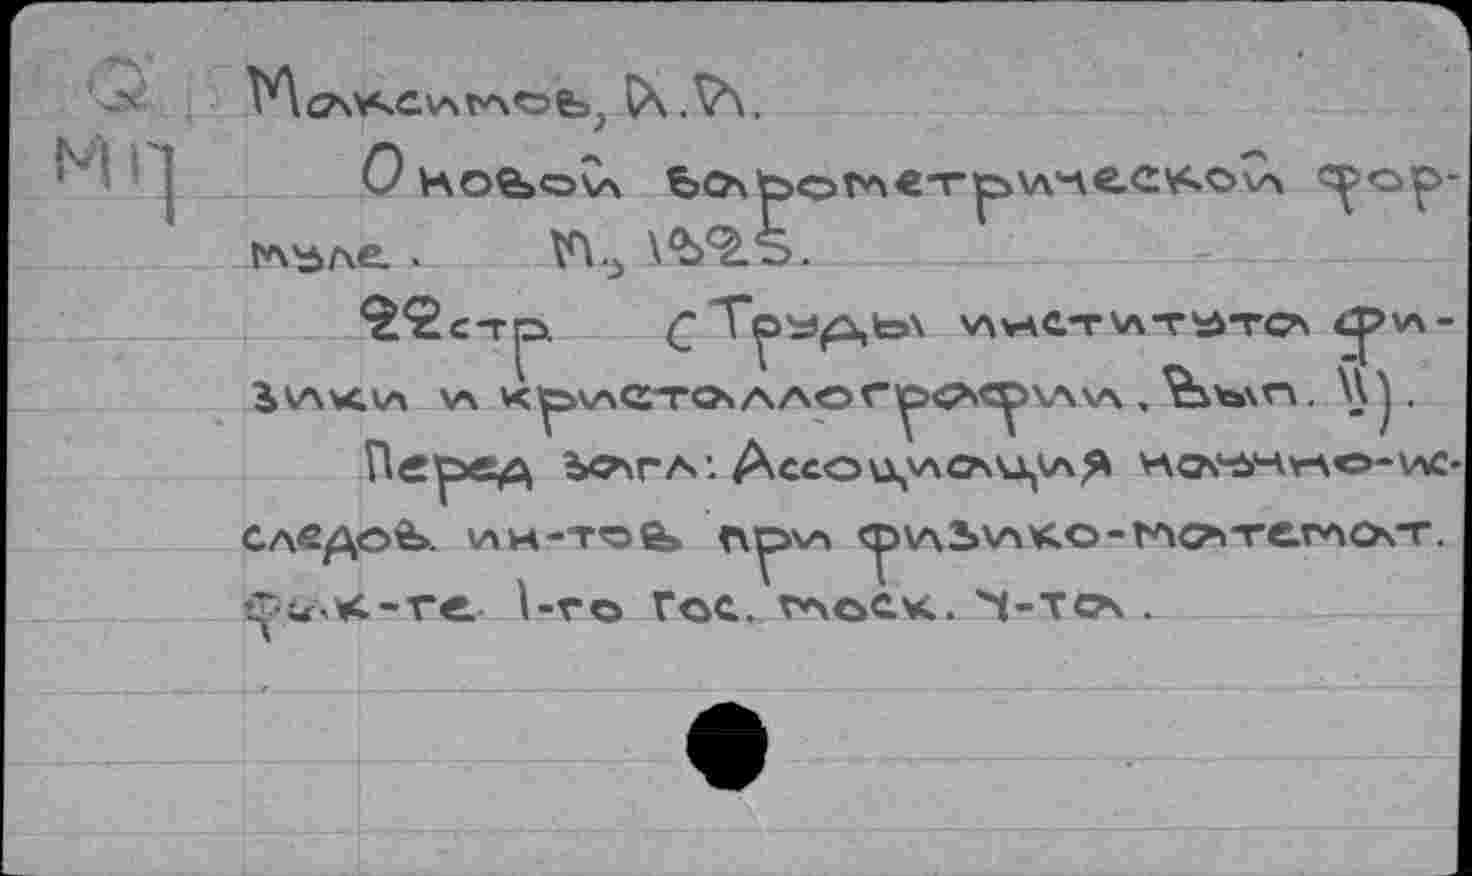 Q Максимов, И.И.
МП О новой барометрической фор-
муле. М., 1925.
22стр. (Труды института фи-
зики и кристаллографии, Вып. II).
Перед загл: Ассоциация научно-ис-
следов. ин-тов при физико-математ.
фак-те 1-го Гос. моск. У-та.